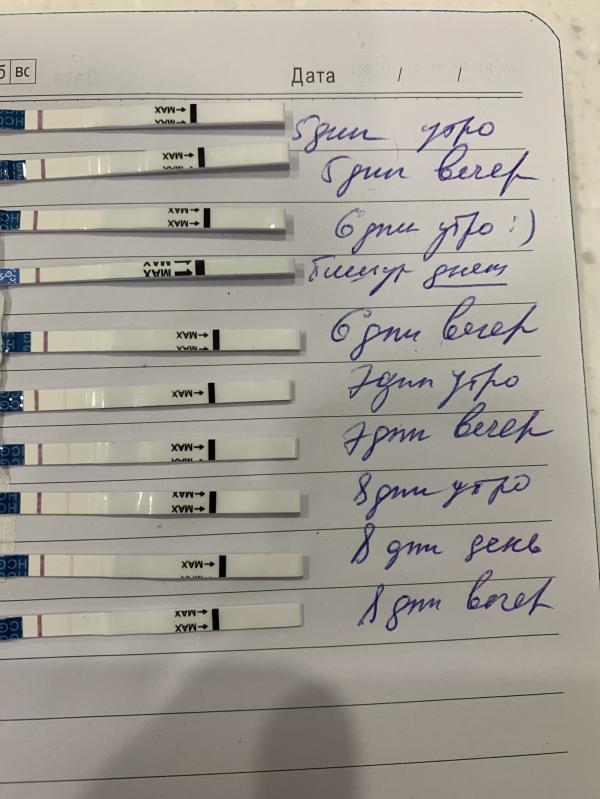 б вс
Дата / /
MAX 5дпп утро
MAX 5дпп вечер
HCG MAX MAX 6дпп утро :)
MAX MAX днем
MAX 6дпп вечер
MAX 7дпп утро
MAX 7дпп вечер
MAX MAX 8дпп утро
HCG MAX 8 дпп день
MAX MAX 8 дпп вечер